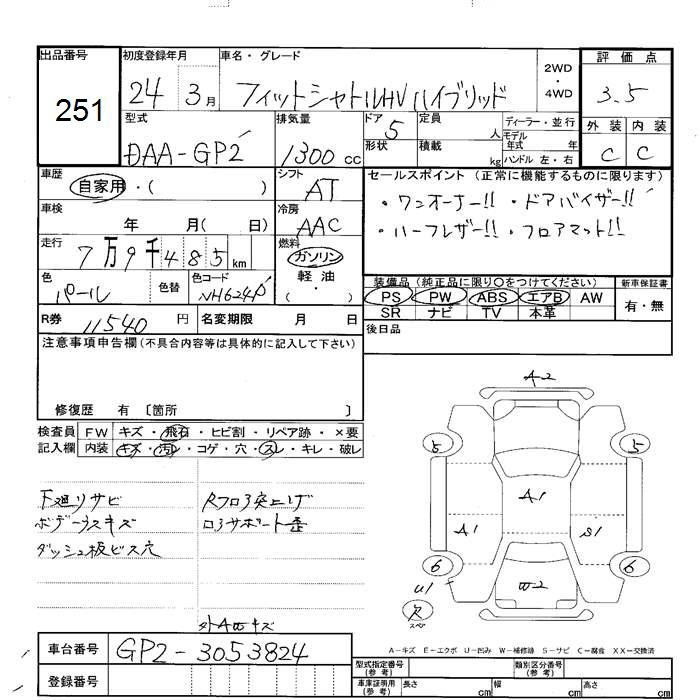 出品番号
251
初度登録年月
24 3月
車名・グレード
フィットシャトルHV ハイブリッド
2WD
・
4WD
評価点
3.5
外装 内装
C C
型式
DAA-GP2
排気量
1300 cc
ドア
5
形状
定員
人
積載
kg
ディーラー・並行
モデル
年式 年
ハンドル 左・右
車歴
自家用・( )
シフト
AT
セールスポイント (正常に機能するものに限ります)
・ワンオーナー!! ・ドアバイザー!!
・ハーフレザー!! ・フロアマット!!
車検
年 月( 日)
冷房
AAC
走行
7万9千485km
燃料
ガソリン
軽油
( )
色
パール
色替
色コード
NH624P
装備品 (純正品に限り〇をつけてください)
PS PW ABS エアB AW
SR ナビ TV 本革
新車保証書
有・無
R券 11540 円
名変期限 月 日
後日品
注意事項申告欄(不具合内容等は具体的に記入して下さい)
修復歴 有 〔箇所 〕
検査員
記入欄
FW キズ・飛石・ヒビ割・リペア跡・×要
内装 キズ・汚れ・コゲ・穴・スレ・キレ・破レ
下廻りサビ
ボデー小スキズ
ダッシュ板ビス穴
Rフロア突上げ
ロアサポート歪
外AWキズ
A-2
5
5
A1
A1
S1
6
6
U1
W2
欠
スペ
A-キズ E-エクボ U-凹み W-補修跡 S-サビ C-腐食 XX-交換済
車台番号 GP2-3053824
登録番号
型式指定番号
(参考)
類別区分番号
(参考)
車庫証明用
(参考)
長さ cm
幅 cm
高さ cm